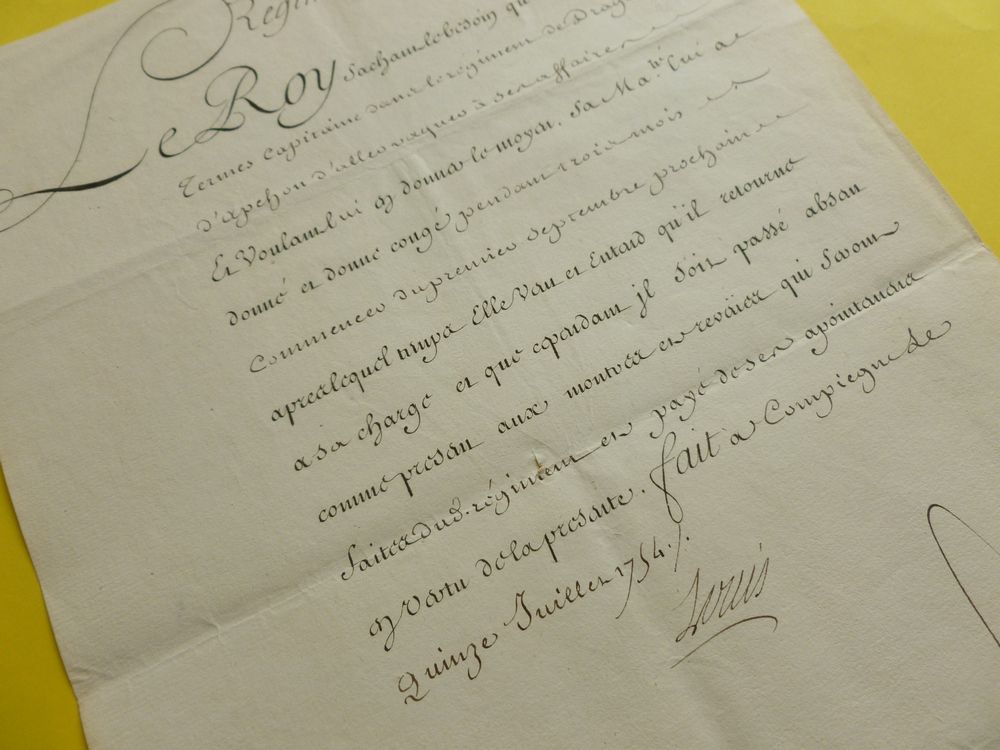 Régim
Le Roy Sachant le besoin que
Termes Capitaine dans le régiment de Drag
d'apchon d'aller vaquer à ses affaires
Et Voulant lui en donner le moyen. Sa Ma.té lui a
donné et donne congé pendant trois mois
commencer du premier Septembre prochain
apres lequel temps Elle Veut et Entend qu'il retourne
a sa charge et que cependant jl soit passé absent
comme present aux montres et revües qui Seront
faites dud. régiment et payé de ses apointemens
en vertu de la presente. fait a Compiegne le
Quinze Juillet 1754./.
Louis